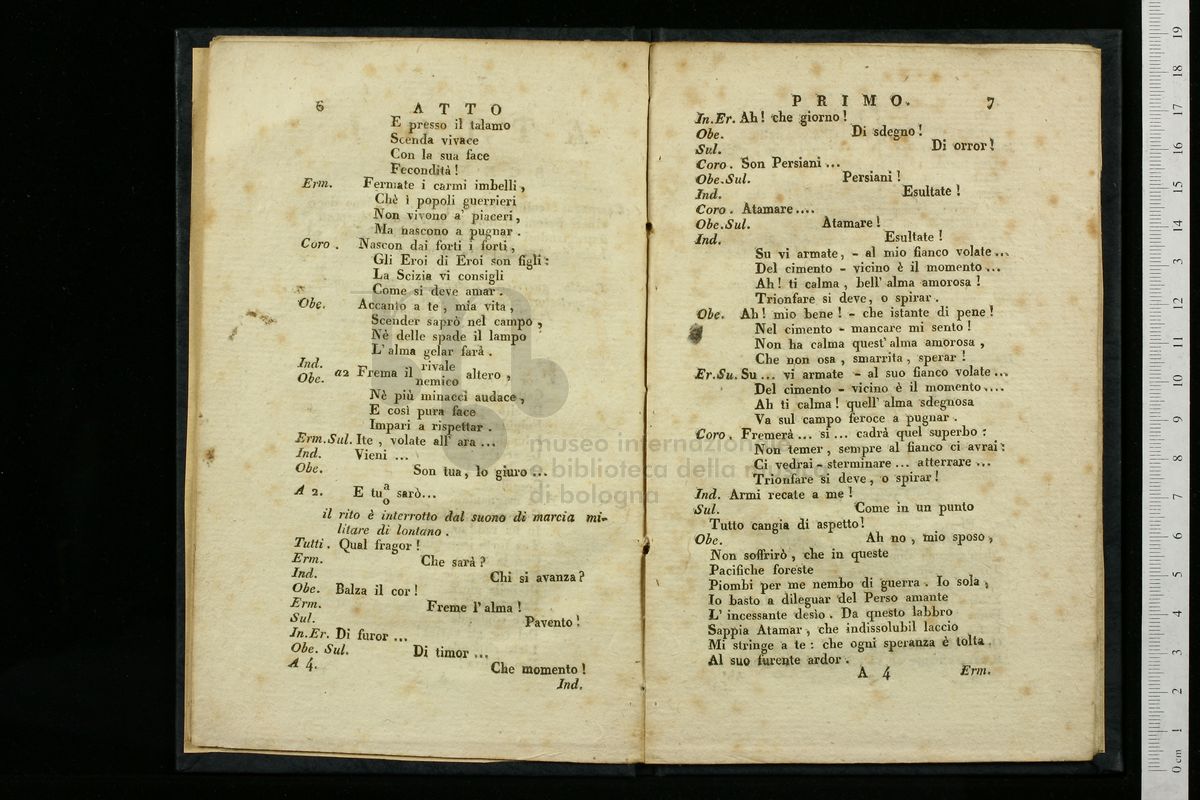 6 ATTO
E presso il talamo
Scenda vivace
Con la sua face
Fecondità !
Erm. Fermate i carmi imbelli ,
Chè i popoli guerrieri
Non vivono a' piaceri ,
Ma nascono a pugnar .
Coro . Nascon dai forti i forti ,
Gli Eroi di Eroi son figli :
La Scizia vi consigli
Come si deve amar .
Obe. Accanto a te , mia vita ,
Scender saprò nel campo ,
Nè delle spade il lampo
L' alma gelar farà .
Ind. rivale
a2 Frema il altero ,
Obe. nemico
Nè più minacci audace ,
E così pura face
Impari a rispettar .
Erm.Sul. Ite , volate all' ara ...
Ind. Vieni ...
Obe. Son tua , lo giuro ...
a
A 2. E tu sarò...
o
il rito è interrotto dal suono di marcia mi-
litare di lontano .
Tutti . Qual fragor !
Erm. Che sarà ?
Ind. Chi si avanza ?
Obe. Balza il cor !
Erm. Freme l' alma !
Sul. Pavento !
In.Er. Di furor ...
Obe. Sul. Di timor ...
A 4. Che momento !
Ind.
PRIMO. 7
In.Er. Ah ! che giorno !
Obe. Di sdegno !
Sul. Di orror !
Coro . Son Persiani ...
Obe.Sul. Persiani !
Ind. Esultate !
Coro . Atamare ....
Obe.Sul. Atamare !
Ind. Esultate !
Su vi armate , - al mio fianco volate ...
Del cimento - vicino è il momento ...
Ah ! ti calma , bell' alma amorosa !
Trionfare si deve , o spirar .
Obe. Ah ! mio bene ! - che istante di pene !
Nel cimento - mancare mi sento !
Non ha calma quest' alma amorosa ,
Che non osa , smarrita , sperar !
Er.Su. Su ... vi armate - al suo fianco volate ...
Del cimento - vicino è il momento ....
Ah ti calma ! quell' alma sdegnosa
Va sul campo feroce a pugnar .
Coro . Fremerà ... sì ... cadrà quel superbo :
Non temer , sempre al fianco ci avrai :
Ci vedrai - sterminare ... atterrare ...
Trionfare si deve , o spirar !
Ind. Armi recate a me !
Sul. Come in un punto
Tutto cangia di aspetto !
Obe. Ah no , mio sposo ,
Non soffrirò , che in queste
Pacifiche foreste
Piombi per me nembo di guerra . Io sola ,
Io basto a dileguar del Perso amante
L' incessante desìo . Da qnesto labbro
Sappia Atamar , che indissolubil laccio
Mi stringe a te : che ogni speranza è tolta
Al suo furente ardor .
A 4 Erm.
museo internazionale
e biblioteca della musica
di bologna
0 cm 1 2 3 4 5 6 7 8 9 10 11 12 13 14 15 16 17 18 19